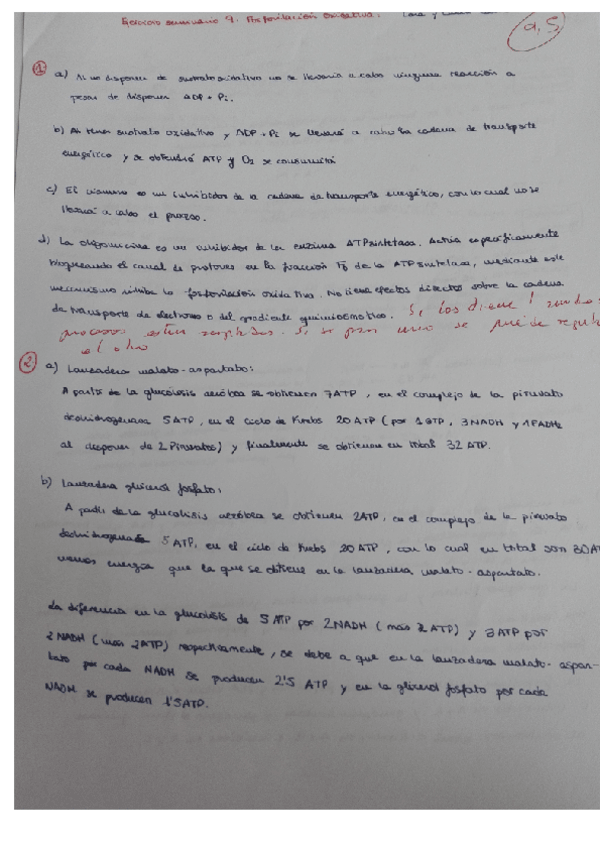 Ejercicio seminario 9. Fosforilación Oxidativa:
9,5
① a) Si no disponen de sustrato oxidativo no se llevaría a cabo ninguna reacción a
pesar de disponer ADP + Pi.
b) Al tener sustrato oxidativo y ADP + Pi se llevará a cabo la cadena de transporte
energético y se obtendrá ATP y O2 se consumirá
c) El cianuro es un inhibidor de la cadena de transporte energético, con lo cual no se
llevará a cabo el proceso.
d) La oligomicina es un inhibidor de la enzima ATPsintetasa. Actúa específicamente
bloqueando el canal de protones en la fracción F0 de la ATPsintetasa, mediante este
mecanismo inhibe la fosforilación oxidativa. No tiene efectos directos sobre la cadena
de transporte de electrones o del gradiente quimiosmótico. Si, los tiene!
procesos estan acoplados. Si se para uno se
el otro
② a) Lanzadera malato-aspartato:
A partir de la glucólisis aeróbea se obtienen 7ATP, en el complejo de la piruvato
deshidrogenasa 5ATP, en el ciclo de Krebs 20ATP (por 1GTP, 3NADH y 1FADH2
al disponer de 2 Piruvatos) y finalmente se obtienen en total 32 ATP.
b) Lanzadera glicerol fosfato:
A partir de la glucolisis aeróbea se obtienen 2ATP, en el complejo de la piruvato
deshidrogenasa 5ATP, en el ciclo de Krebs 20ATP, con lo cual en total son 30AT
menos energía que la que se obtiene en la lanzadera malato-aspartato.
La diferencia en la glucólisis de 5ATP por 2NADH (más 2ATP) y 3ATP por
2NADH (más 2ATP) respectivamente, se debe a que en la lanzadera malato-aspar-
tato por cada NADH se producen 2'5 ATP y en la glicerol fosfato por cada
NADH se producen 1'5ATP.